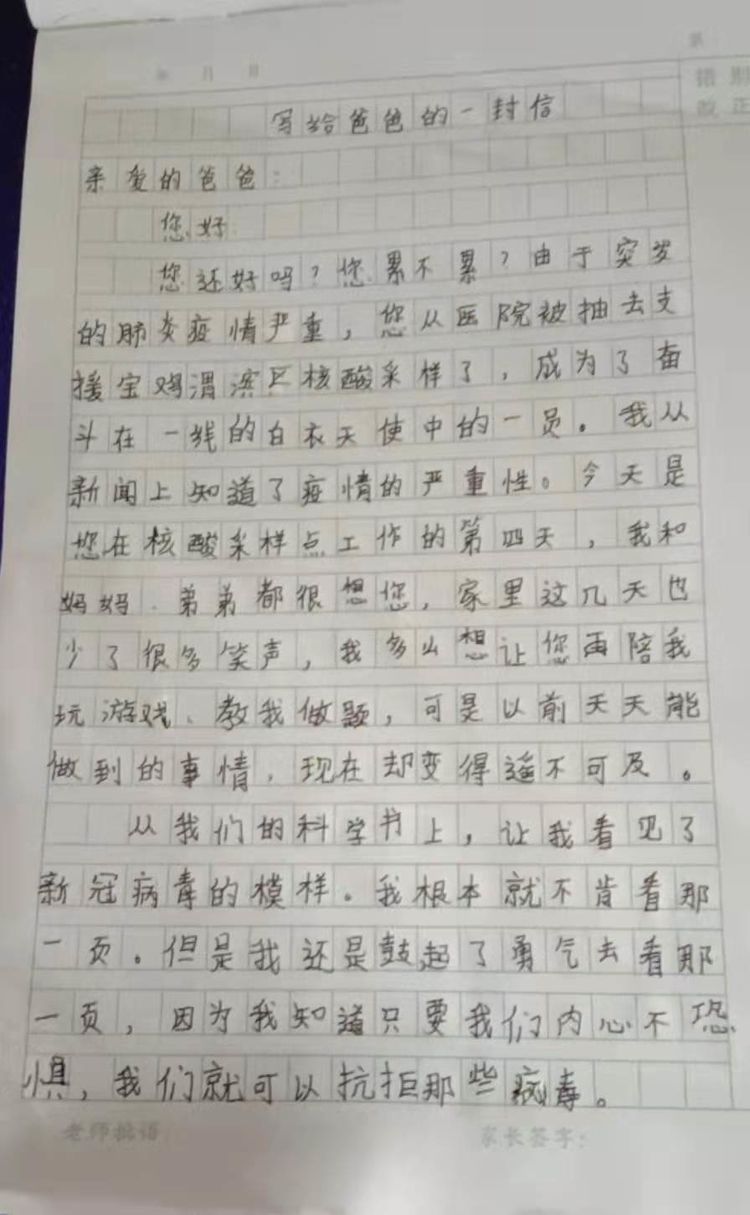 第
年 月 日
错别
改正
写给爸爸的一封信
亲爱的爸爸：
您好
您还好吗？您累不累？由于突发
的肺炎疫情严重，您从医院被抽去支
援宝鸡渭滨区核酸采样了，成为了奋
斗在一线的白衣天使中的一员。我从
新闻上知道了疫情的严重性。今天是
您在核酸采样点工作的第四天，我和
妈妈、弟弟都很想您，家里这几天也
少了很多笑声，我多么想让您再陪我
玩游戏、教我做题，可是以前天天能
做到的事情，现在却变得遥不可及。
从我们的科学书上，让我看见了
新冠病毒的模样。我根本就不肯看那
一页。但是我还是鼓起了勇气去看那
一页，因为我知道只要我们内心不恐
惧，我们就可以抗拒那些病毒。
老师批语 家长签字：